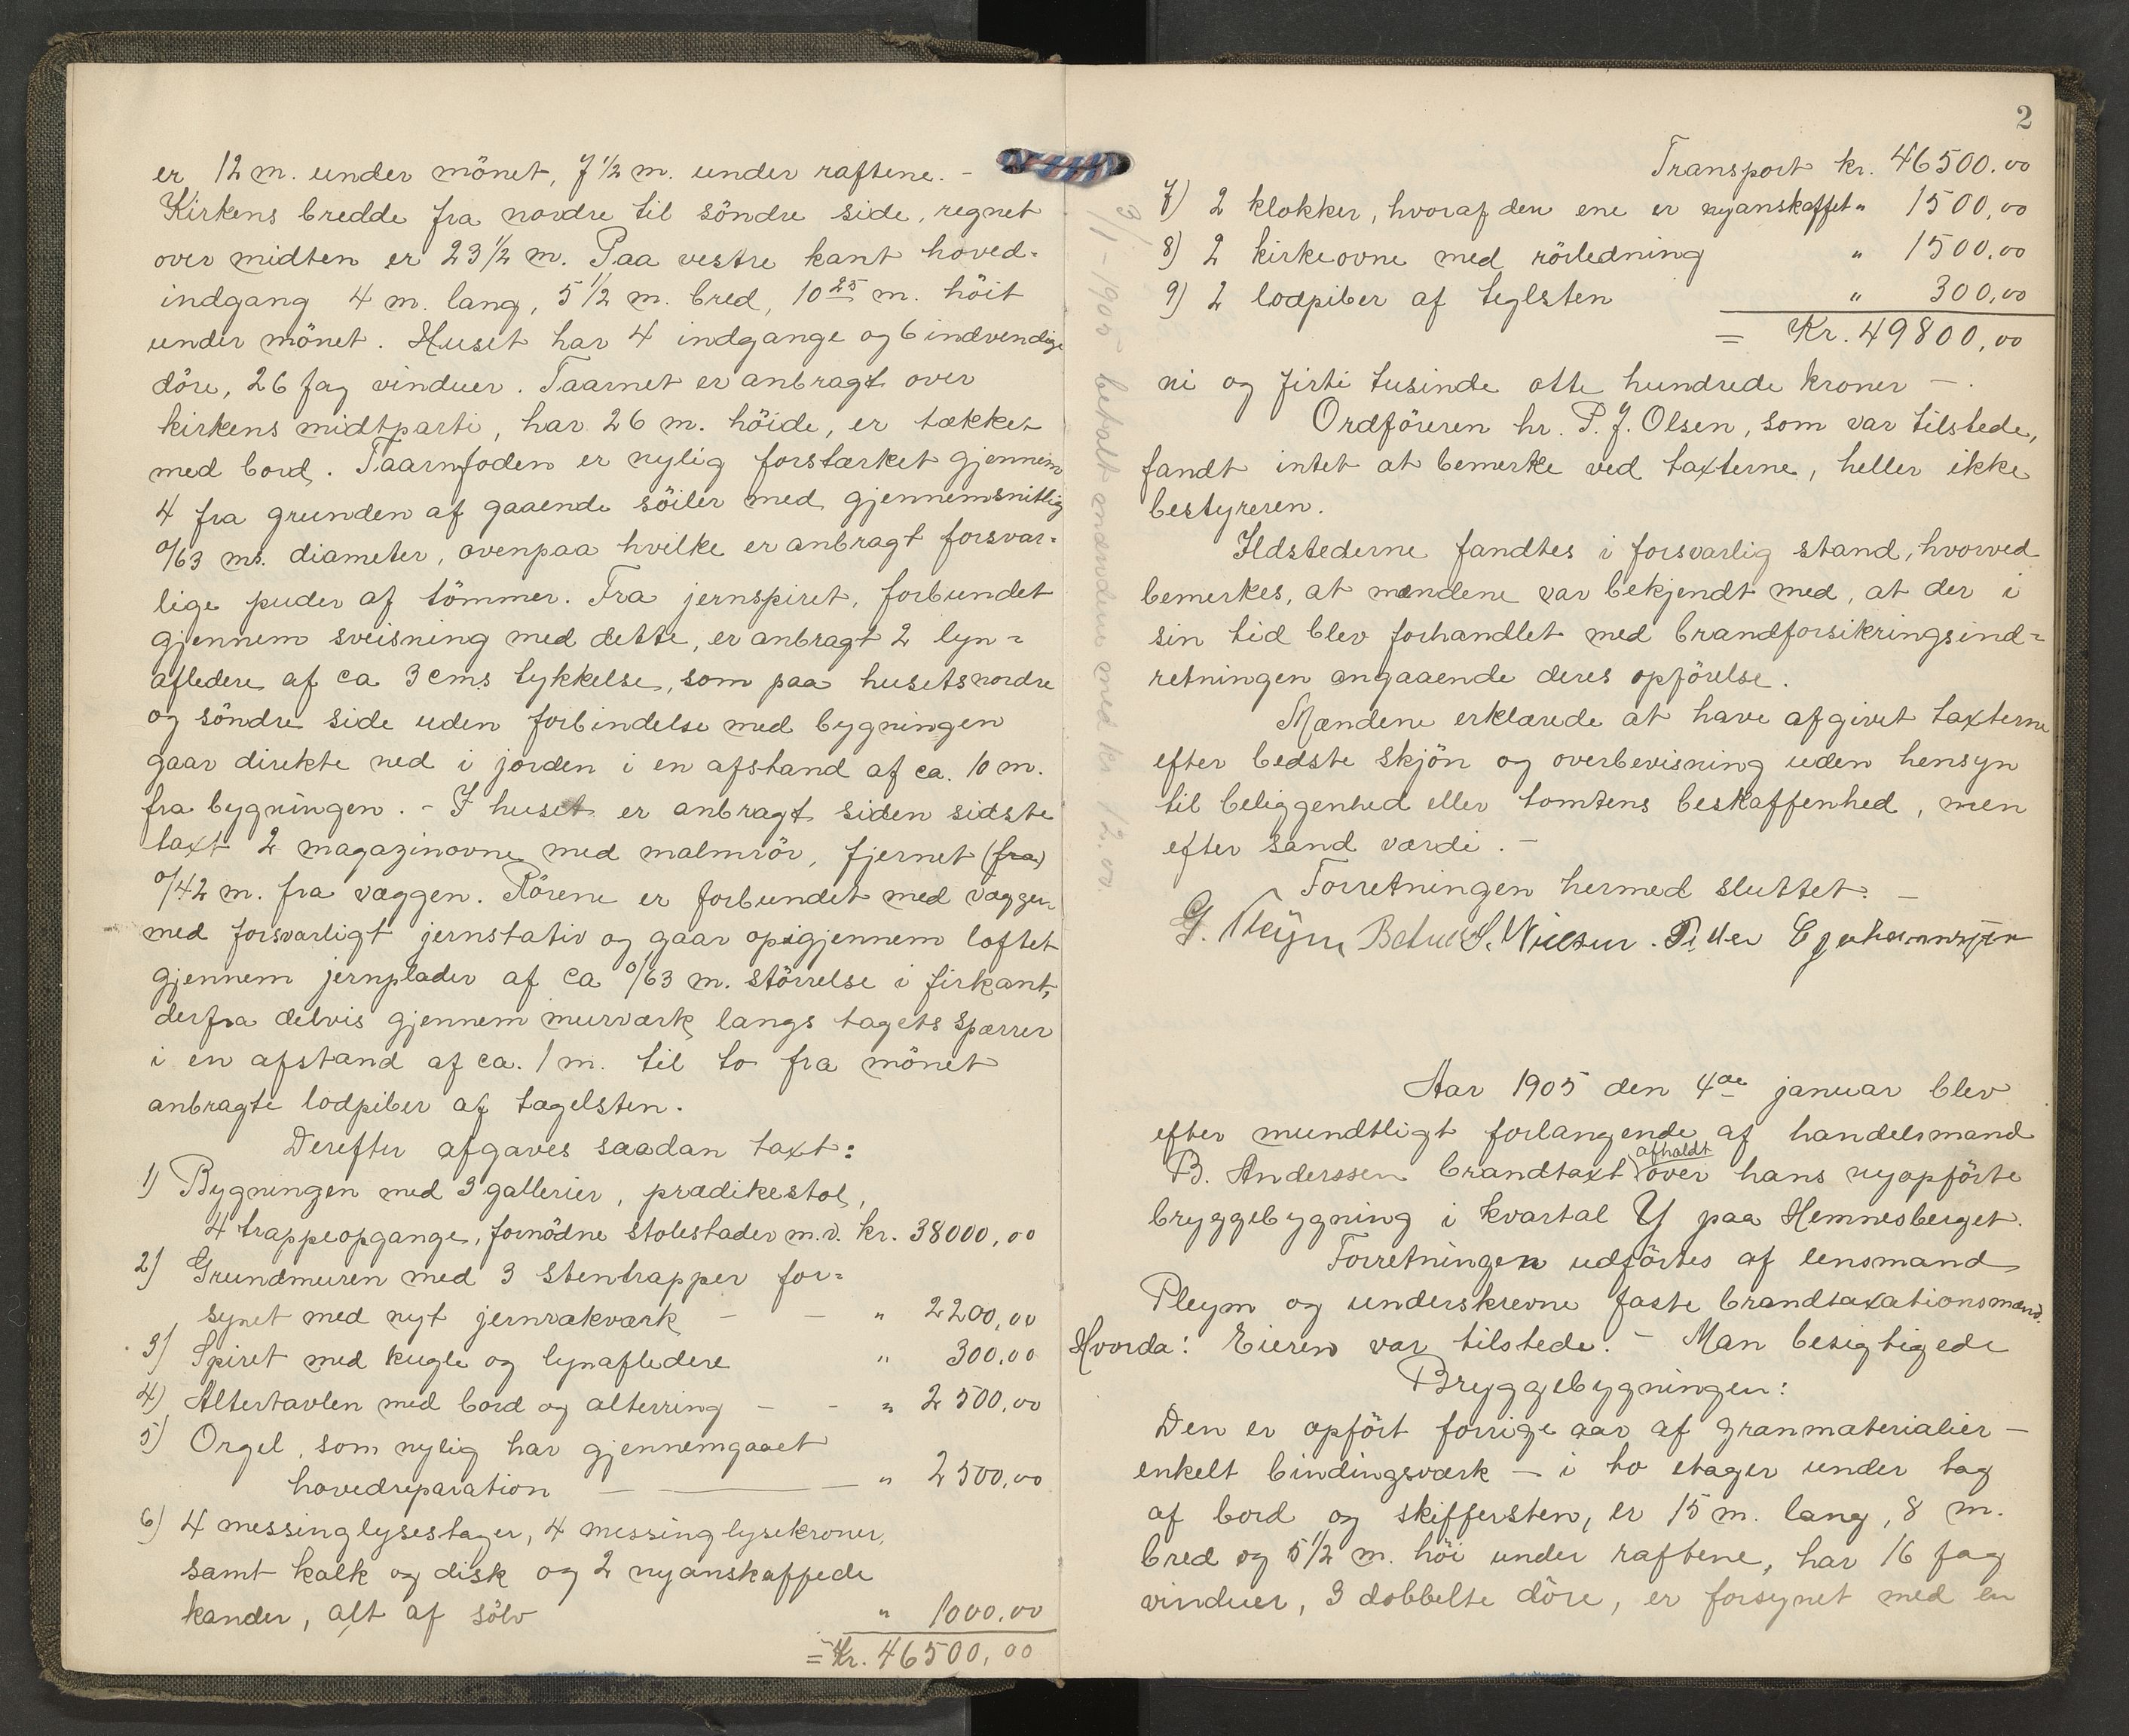 er 12 m. under mönet, 7 1/2 m. under raftene. -
Kirkens bredde fra nordre til söndre side, regnet
over midten er 23 1/2 m. Paa vestre kant hoved-
indgang 4 m. lang, 5 1/2 m. bred, 10 25 m. höit
under mönet. Huset har 4 indgange og 6 indvendige
döre, 26 fag vinduer. Taarnet er anbragt over
kirkens midtparti, har 26 m. höide, er tækket
med bord. Taarnfoden er nylig forstærket gjennem
4 fra grunden af gaaende söiler med gjennemsnitlig
0/63 ms. diameter, ovenpaa hvilke er anbragt forsvar-
lige puder af tömmer. Fra jernspiret, forbundet
gjennem sveisning med dette, er anbragt 2 lyn-
afledere af ca 3 cms tykkelse, som paa husets nordre
og söndre side uden forbindelse med bygningen
gaar direkte ned i jorden i en afstand af ca. 10 m.
fra bygningen. - I huset er anbragt siden sidste
taxt 2 magazinovne med malmrör, fjernet (fra)
0/42 m. fra væggen. Rörene er forbundet med væggen
med forsvarligt jernstativ og gaar op igjennem loftet
gjennem jernplader af ca 0/63 m. störrelse i firkant,
derfra delvis gjennem murværk langs tagets spærrer
i en afstand af ca. 1 m. til to fra mönet
anbragte lodpiber af tagelsten.
Derefter afgaves saadan taxt:
1) Bygningen med 3 gallerier, prædikestol,
4 trappeopgange, fornödne stolestader m.v. kr. 38000,00
2) Grundmuren med 3 stentrapper for-
synet med nyt jernrækværk - - " 2200,00
3) Spiret med kugle og lynafledere " 300,00
4) Altertavlen med bord og alterring - - " 2500,00
5) Orgel, som nylig har gjennemgaaet
hovedreparation - - - " 2500,00
6) 4 messinglysestager, 4 messinglysekroner,
samt kalk og disk og 2 nyanskaffede
kander, alt af sölv " 1000,00
= Kr. 46500,00
2
Transport kr. 46500,00
7) 2 klokker, hvoraf den ene er nyanskaffet " 1500,00
8) 2 kirkeovne med rörledning " 1500,00
9) 2 lodpiber af teglsten " 300,00
= Kr. 49800,00
ni og firti tusinde otte hundrede kroner -.
Ordföreren hr. P. J. Olsen, som var tilstede,
fandt intet at bemerke ved taxterne, heller ikke
bestyreren.
Ildstederne fandtes i forsvarlig stand, hvorved
bemerkes, at mændene var bekjendt med, at der i
sin tid blev forhandlet med brandforsikringsind-
retningen angaaende deres opförelse.
Mændene erklærede at have afgivet taxterne
efter bedste skjön og overbevisning uden hensyn
til beliggenhed eller tomtens beskaffenhed, men
efter sand værdi. -
Forretningen hermed sluttet. -
G. Pleym S. Nielsen. Petter
3/1-1905 betalt mændene med kr 12.00.
Aar 1905 den 4de januar blev
efter mundtligt forlangende af handelsmand
B. Anderssen brandtaxt afholdt over hans nyopförte
bryggebygning i kvartal Y paa Hemnesberget.
Forretningen udförtes af lensmand
Pleym og underskrevne faste brandtaxationsmænd.
Hvorda: Eieren var tilstede. - Man besigtigede
Bryggebygningen:
Den er opfört forrige aar af granmaterialier -
enkelt bindingsværk - i to etager under tag
af bord og skiffersten, er 15 m. lang, 8 m.
bred og 5 1/2 m. höi under raftene, har 16 fag
vinduer, 3 dobbelte döre, er forsynet med en